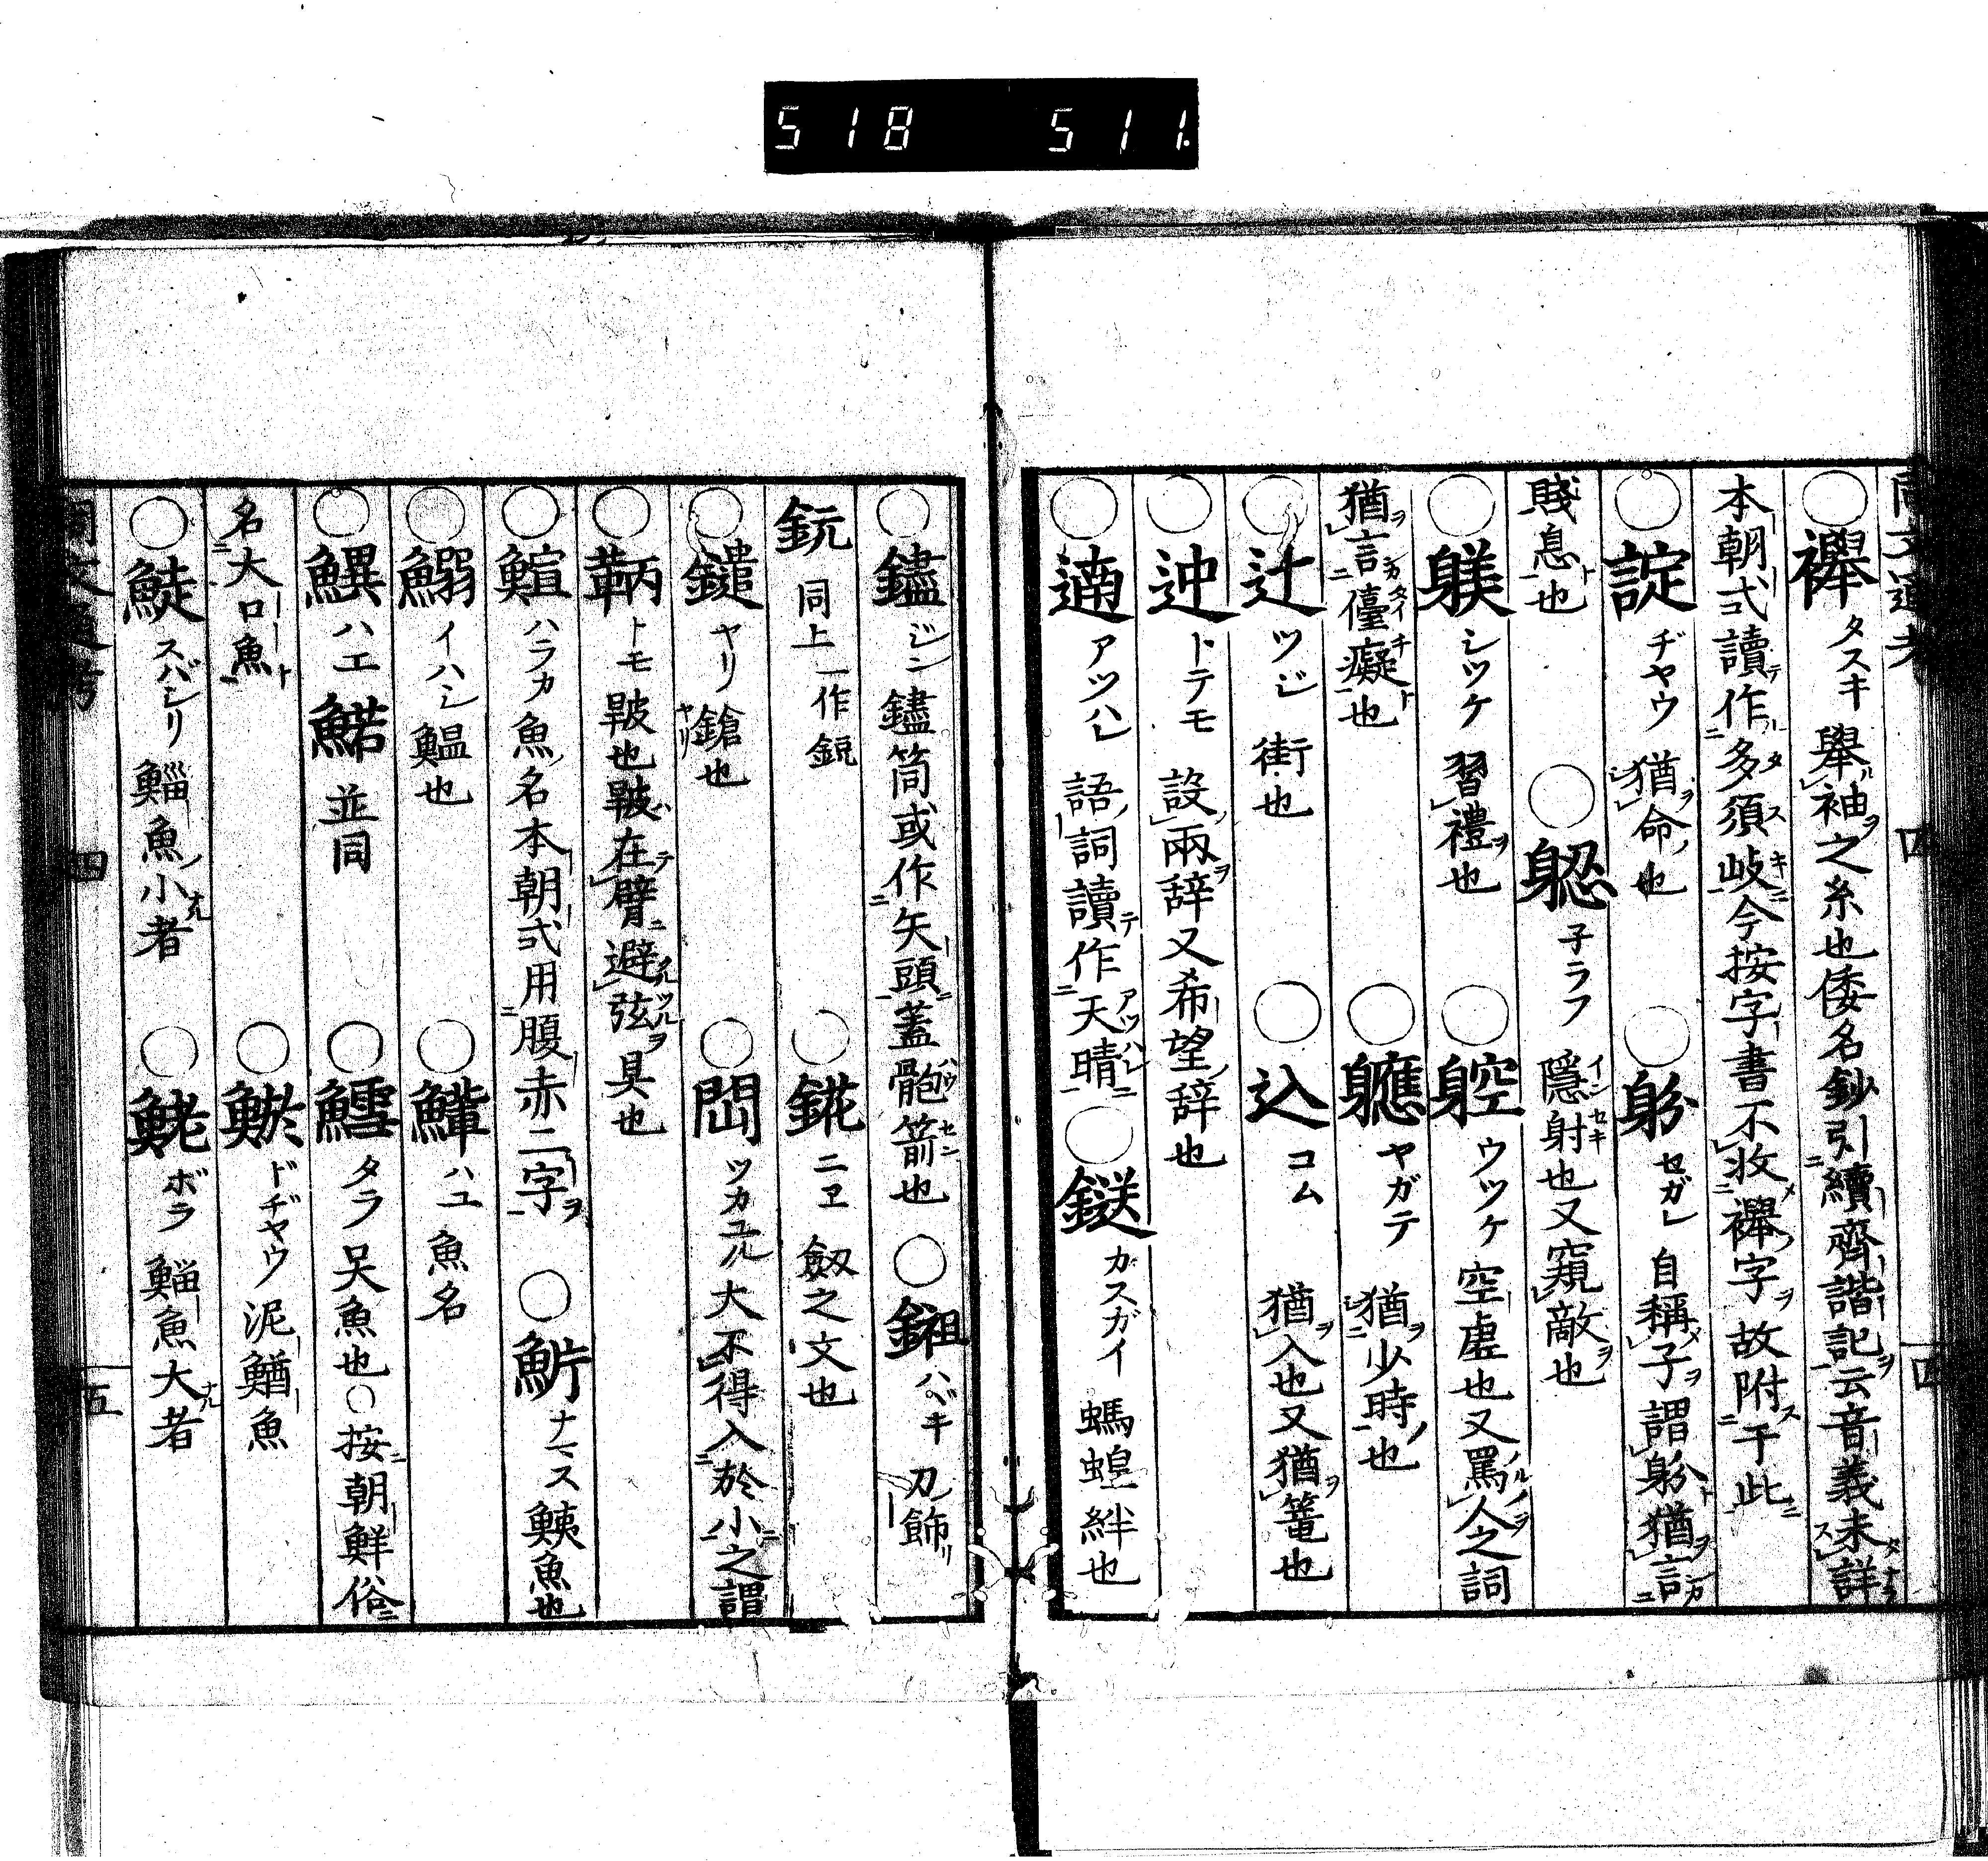 518 511.
○襷 タスキ 擧袖之糸也倭名鈔引續齊諧記云音義未詳
本朝式讀作多須岐今按字書不收襷字故附于此
○諚 ヂヤウ 猶命也 ○躮 セガレ 自稱子謂躮猶言
賤息也 ○躵 子ラフ 隱射也又窺敵也
○躾 シツケ 習禮也 ○躻 ウツケ 空虛也又罵人之詞
猶言儓癡也 ○軈 ヤガテ 猶少時也
○辻 ツジ 街也 ○込 コム 猶入也又猶篭也
○迚 トテモ 設兩辞又希望辞也
○遖 アツハレ 語詞讀作天晴 ○鎹 カスガイ 螞蝗絆也
○鑪 ジン 筒或作矢頭蓋骲箭也 ○鎺 ハバキ 刀飾
鈨 同上一作鋭 ○錵 ニヱ 劔之文也
○鑓 ヤリ 鎗也 ○閊 ツカユル 大不得入於小之謂
○鞆 トモ 皸也在臂避弦具也
○鰚 ハラカ 魚名本朝式用腹赤二字 ○魸 ナマス 鮧魚也
○鰯 イハシ 鰮也 ○鯶 ハユ 魚名
○鱞 ハエ 鰙 並同 ○鱈 タラ 吴魚也○按朝鮮俗
名大口魚 ○鯲 ドヂヤウ 泥鰌魚
○鯐 スバシリ 鯔魚小者 ○鮱 ボラ 鯔魚大者
四
五